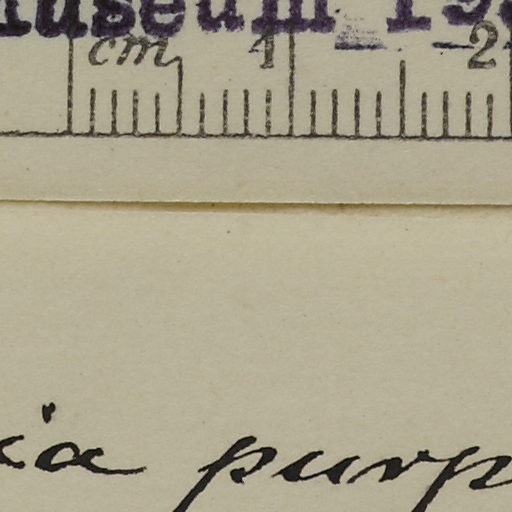 museum 19
cm 1 2
ia purp